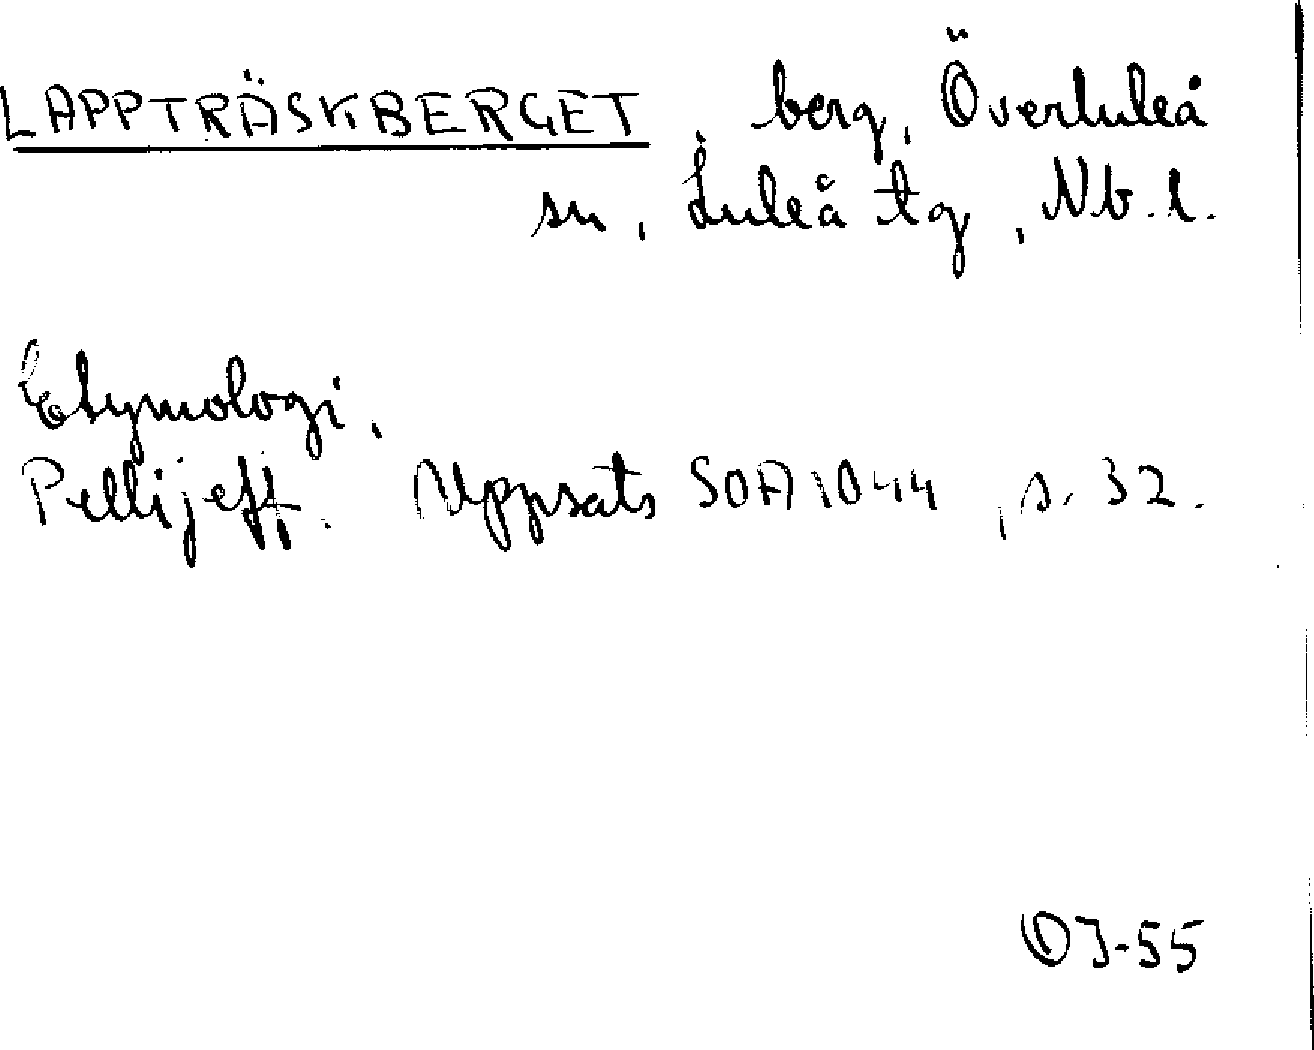 LAPPTRÄSKBERGET, berg, Överluleå
sn, Luleå tg, Nb. l.
Etymologi,
Pellijeff. Uppsats SOA 1044, s. 32.
OJ-55